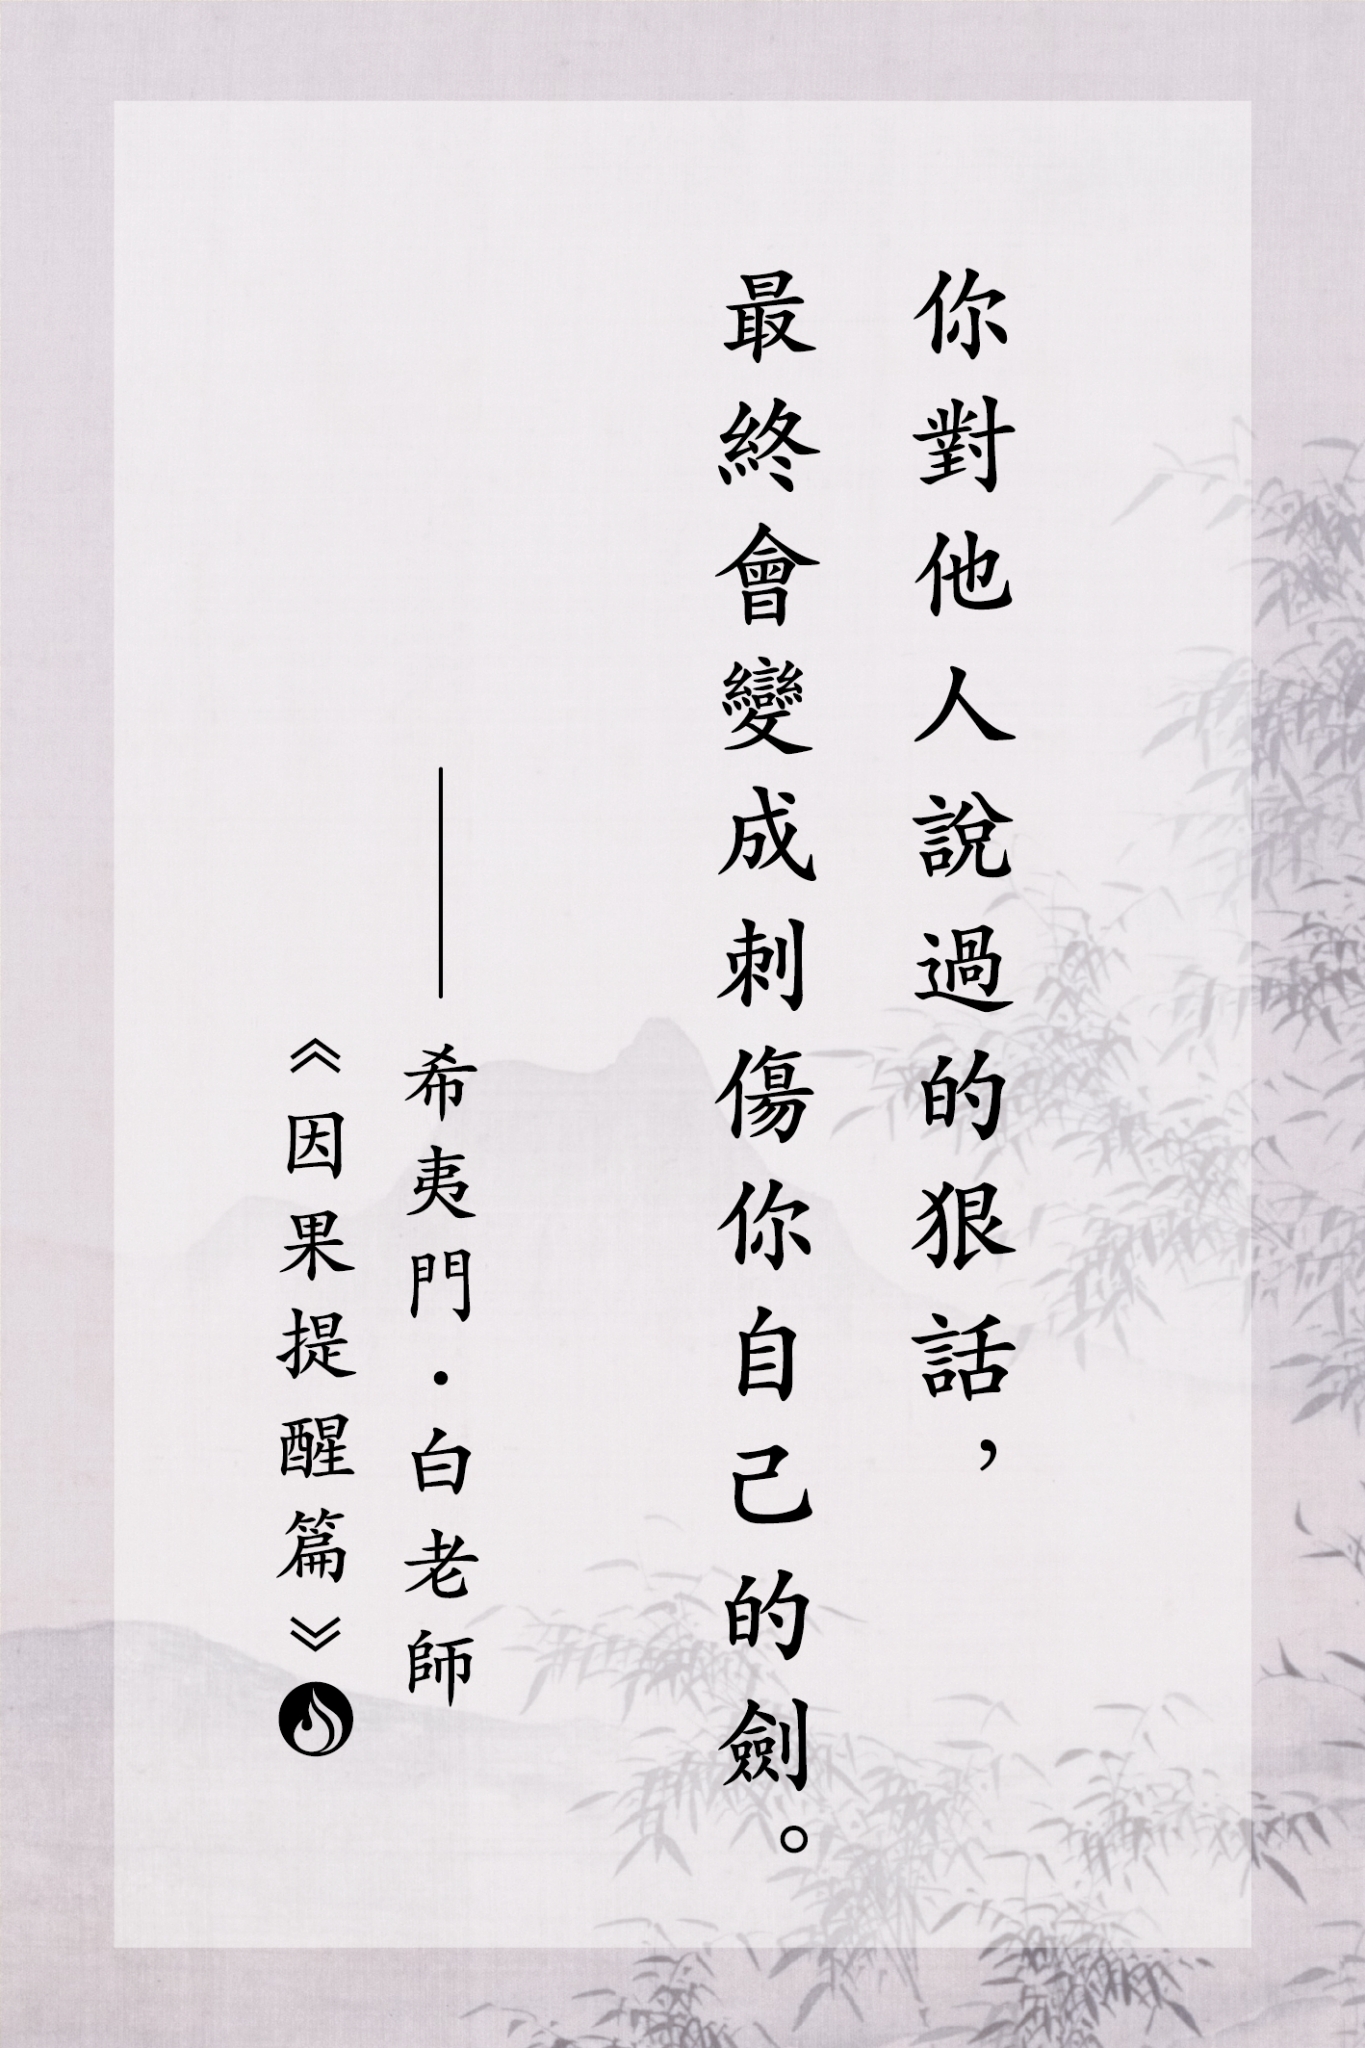 你對他人說過的狠話，
最終會變成刺傷你自己的劍。
——希夷門·白老師
《因果提醒篇》